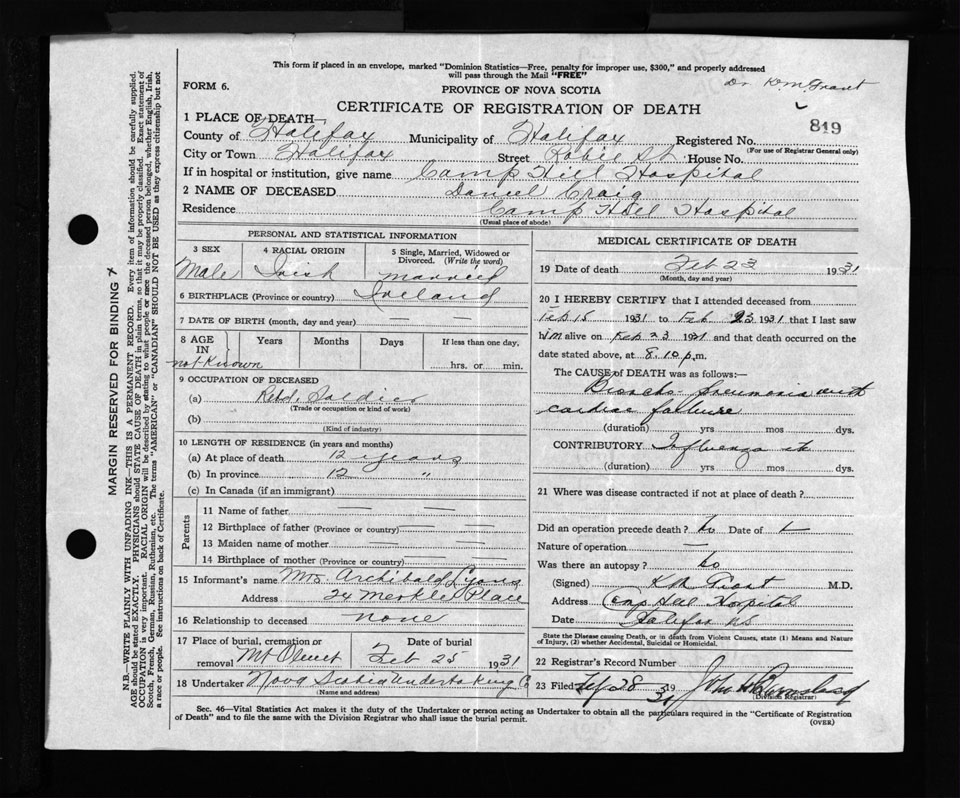 This form if placed in an envelope, marked "Dominion Statistics—Free, penalty for improper use, $300," and properly addressed
will pass through the Mail "FREE"
Dr. K. M. Grant
FORM 6.
PROVINCE OF NOVA SCOTIA
CERTIFICATE OF REGISTRATION OF DEATH
819
1 PLACE OF DEATH—
County of Halifax Municipality of Halifax Registered No.
(For use of Registrar General only)
City or Town Halifax Street Robie St. House No.
If in hospital or institution, give name Camp Hill Hospital
2 NAME OF DECEASED Daniel Craig
Residence Camp Hill Hospital
(Usual place of abode)
PERSONAL AND STATISTICAL INFORMATION
3 SEX 4 RACIAL ORIGIN 5 Single, Married, Widowed or
Divorced. (Write the word)
Male Irish married
6 BIRTHPLACE (Province or country) Ireland
7 DATE OF BIRTH (month, day and year) — —
8 AGE IN Years Months Days If less than one day,
not Known hrs. or min.
9 OCCUPATION OF DECEASED
(a) Retd. Soldier
(Trade or occupation or kind of work)
(b)
(Kind of industry)
10 LENGTH OF RESIDENCE (in years and months)
(a) At place of death 12 years
(b) In province 12 "
(c) In Canada (if an immigrant)
Parents
11 Name of father — —
12 Birthplace of father (Province or country) — —
13 Maiden name of mother — —
14 Birthplace of mother (Province or country) — —
15 Informant's name Mrs. Archibald Lyons
Address 24 Merkle Place
16 Relationship to deceased none
17 Place of burial, cremation or Date of burial
removal Mt Olivet Feb 25 1931
18 Undertaker Nova Scotia Undertaking Co
(Name and address)
MEDICAL CERTIFICATE OF DEATH
19 Date of death Feb 23 1931
(Month, day and year)
20 I HEREBY CERTIFY that I attended deceased from
Feb 15 1931 to Feb 23 1931 that I last saw
him alive on Feb 23 1931 and that death occurred on the
date stated above, at 8.10 p.m.
The CAUSE OF DEATH was as follows:
Broncho pneumonia with
cardiac failure
(duration) yrs mos dys.
CONTRIBUTORY Influenza
(duration) yrs mos dys.
21 Where was disease contracted if not at place of death?
Did an operation precede death? Date of
Nature of operation —
Was there an autopsy?
(Signed) K M Grant M.D.
Address Camp Hill Hospital
Date Halifax NS
State the Disease causing Death, or in death from Violent Causes, state (1) Means and Nature
of Injury, (2) whether Accidental, Suicidal or Homicidal.
22 Registrar's Record Number
23 Filed 28 19 31
(Division Registrar)
Sec. 46—Vital Statistics Act makes it the duty of the Undertaker or person acting as Undertaker to obtain all the particulars required in the "Certificate of Registration
of Death" and to file the same with the Division Registrar who shall issue the burial permit.
(OVER)
MARGIN RESERVED FOR BINDING
N.B.—WRITE PLAINLY WITH UNFADING INK—THIS IS A PERMANENT RECORD. Every item of information should be carefully supplied.
AGE should be stated EXACTLY. PHYSICIANS should STATE CAUSE OF DEATH in plain terms, so that it may be properly classified. Exact statement of
OCCUPATION is very important. RACIAL ORIGIN will be described by stating to what people or race the deceased person belonged, whether English, Irish,
Scotch, French, German, Russian, Ruthenian, etc. The terms "AMERICAN" or "CANADIAN" SHOULD NOT BE USED as they express citizenship but not
a race or people. See instructions on back of Certificate.